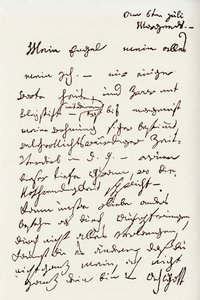 Am 6ten Juli
Morgends. —
Mein Engel, mein alles
mein Ich. — nur einige
Worte heute, und zwar mit
Bleystift (mit deinem) erst bis morgen ist
meine Wohnung sicher bestimmt,
welcher nichtswürdiger Zeit-
verderb in d. g. — warum
dieser tiefe Gram, wo die
Nothwendigkeit spricht —
Kann unsre Liebe anders
bestehn als durch Aufopferungen,
durch nicht alles verlangen,
kannst du es ändern, daß du
nicht ganz mein, ich nicht
ganz dein bin — Ach Gott